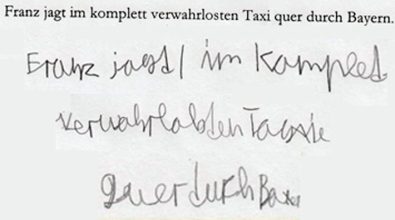 Franz jagt im komplett verwahrlosten Taxi quer durch Bayern.
Franz jagd im Kompled
verwahrlobten Taxsie
quer durch